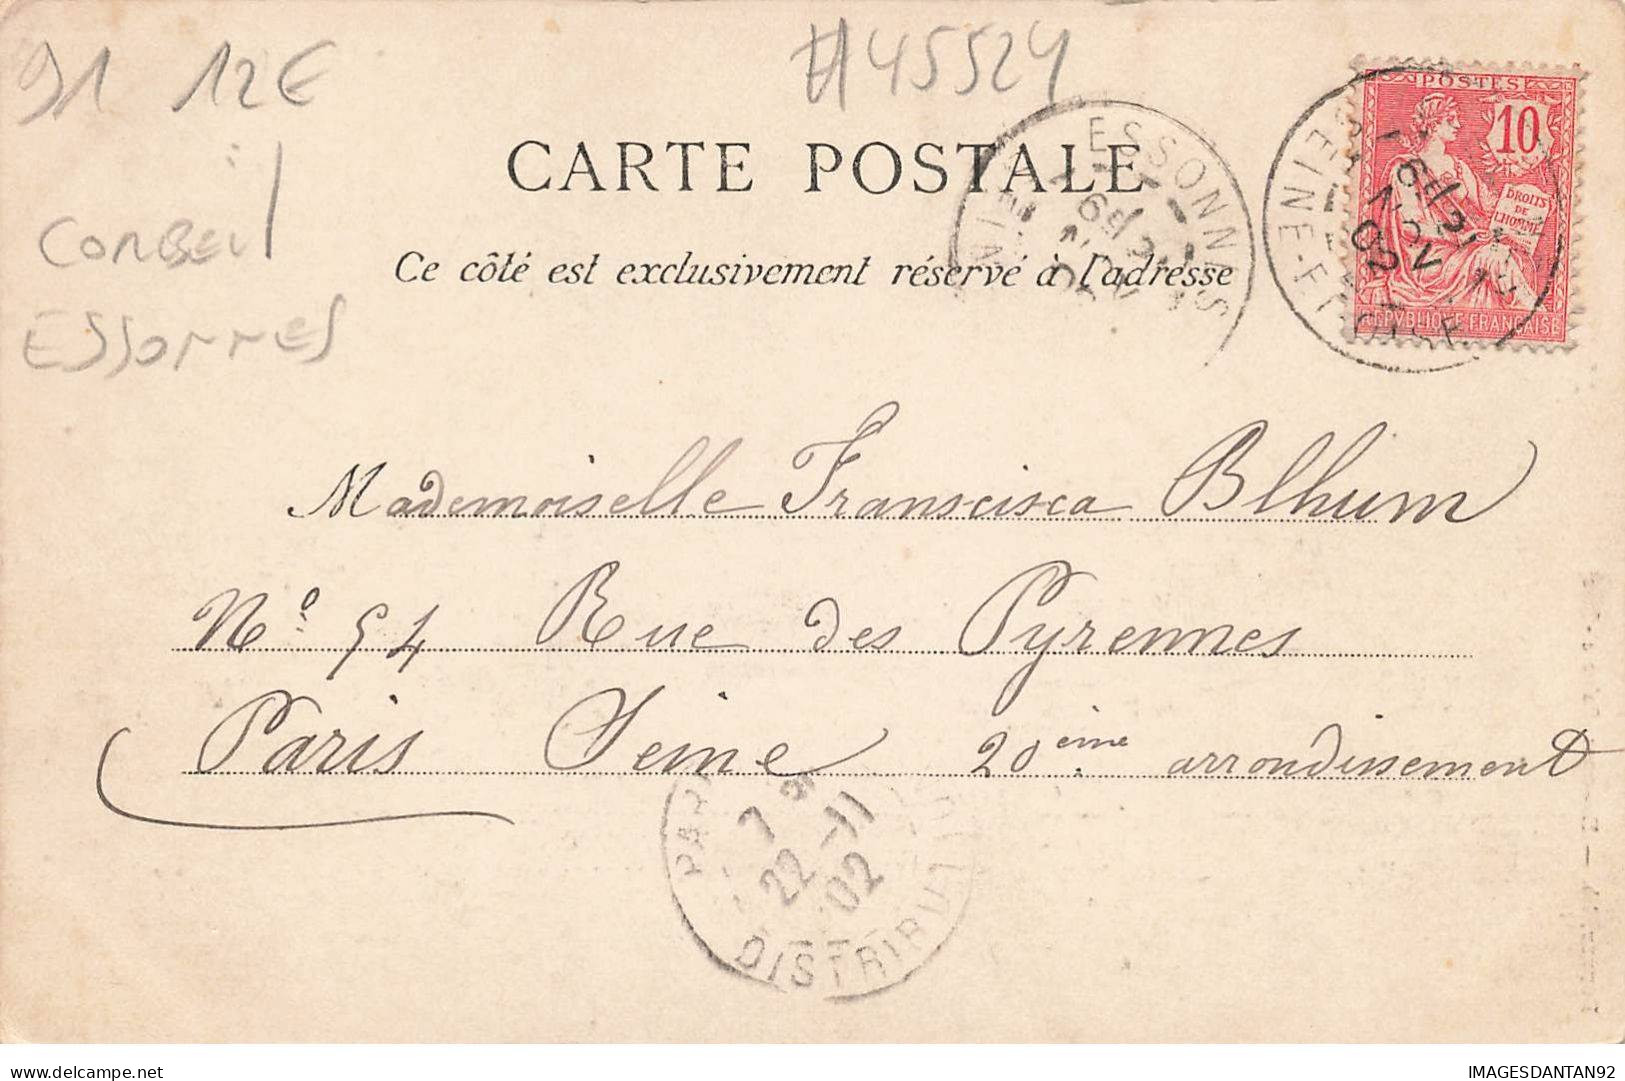 91 12€ #45524
Corbeil
Essonnes
CARTE POSTALE
Ce côté est exclusivement réservé à l'adresse
ESSONNES
POSTES
10
DROITS
DE
L'HOMME
REPVBLIQVE FRANÇAISE
SEINE-ET-OISE
21
NOV
02
Mademoiselle Franscisca Blhum
N° 54 Rue des Pyrennes
Paris Seine 20ème arrondissement
PARIS
7
22-11
02
DISTRIBUTION
delcampe.net
IMAGESDANTAN92